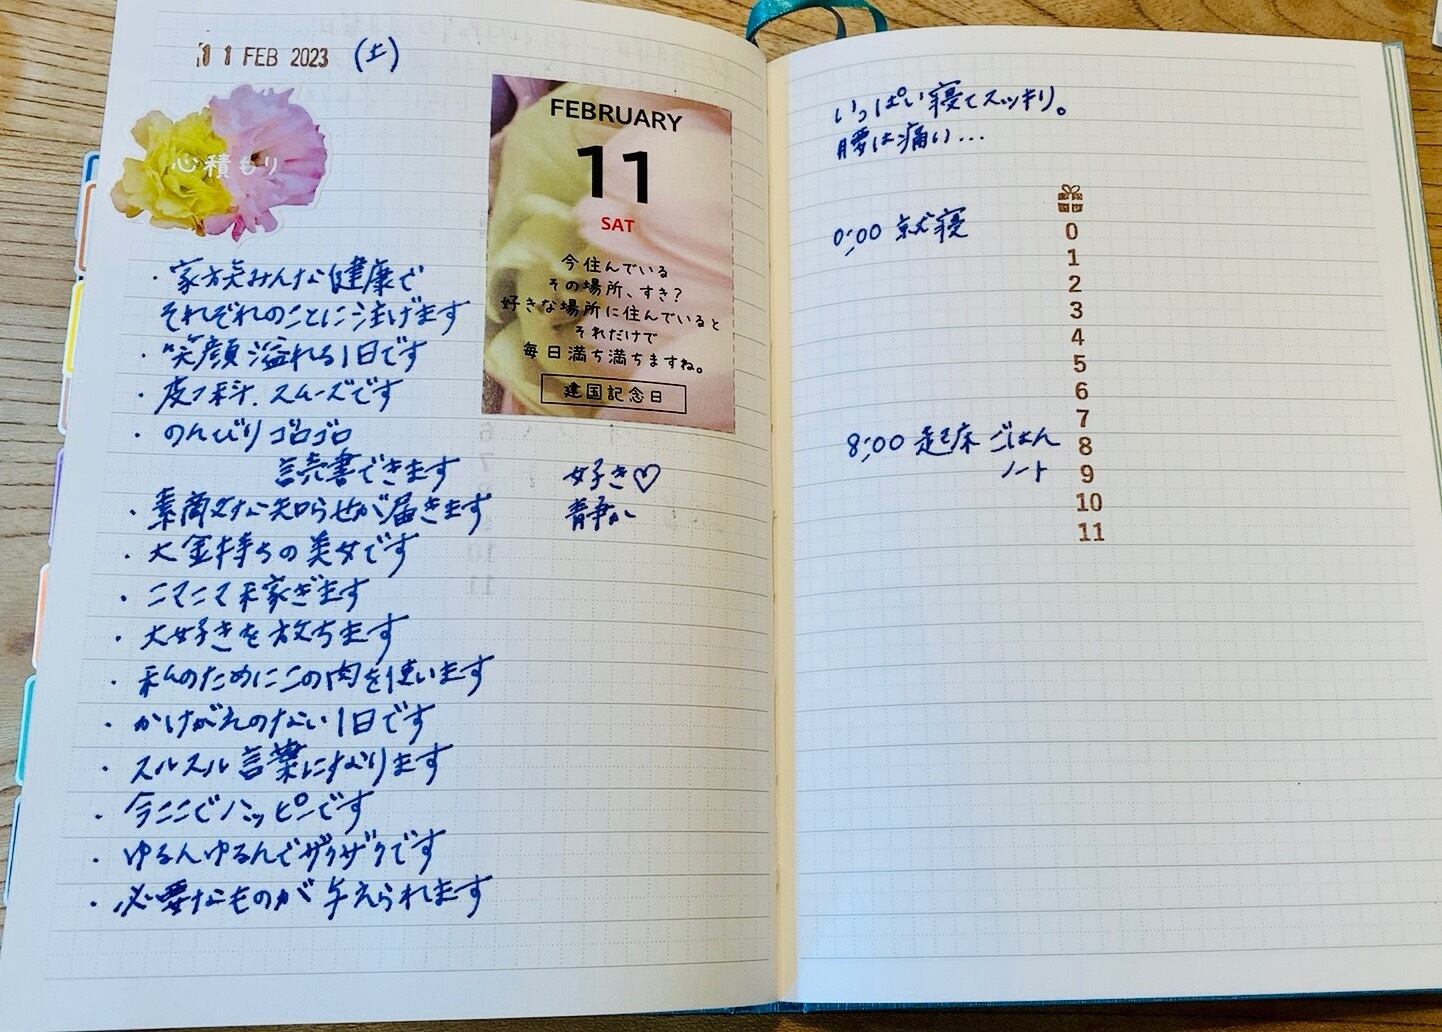 11 FEB 2023 (土)
心積もり
・家族みんな健康で
それぞれのことに注げます
・笑顔溢れる1日です
・皮フ科、スムーズです
・のんびりゴロゴロ
読書できます
・素敵な知らせが届きます
・大金持ちの美女です
・ニマニマ稼ぎます
・大好きを放ちます
・私のためにこの肉を使います
・かけがえのない1日です
・スルスル言葉になります
・今ここでハッピーです
・ゆるんゆるんでザクザクです
・必要なものが与えられます
FEBRUARY
11
SAT
今住んでいる
その場所、すき?
好きな場所に住んでいると
それだけで
毎日満ち満ちますね。
建国記念日
好き♡
静か
いっぱい寝てスッキリ。
腰は痛い…
0:00 就寝
8:00 起床 ごはん
ノート
0
1
2
3
4
5
6
7
8
9
10
11